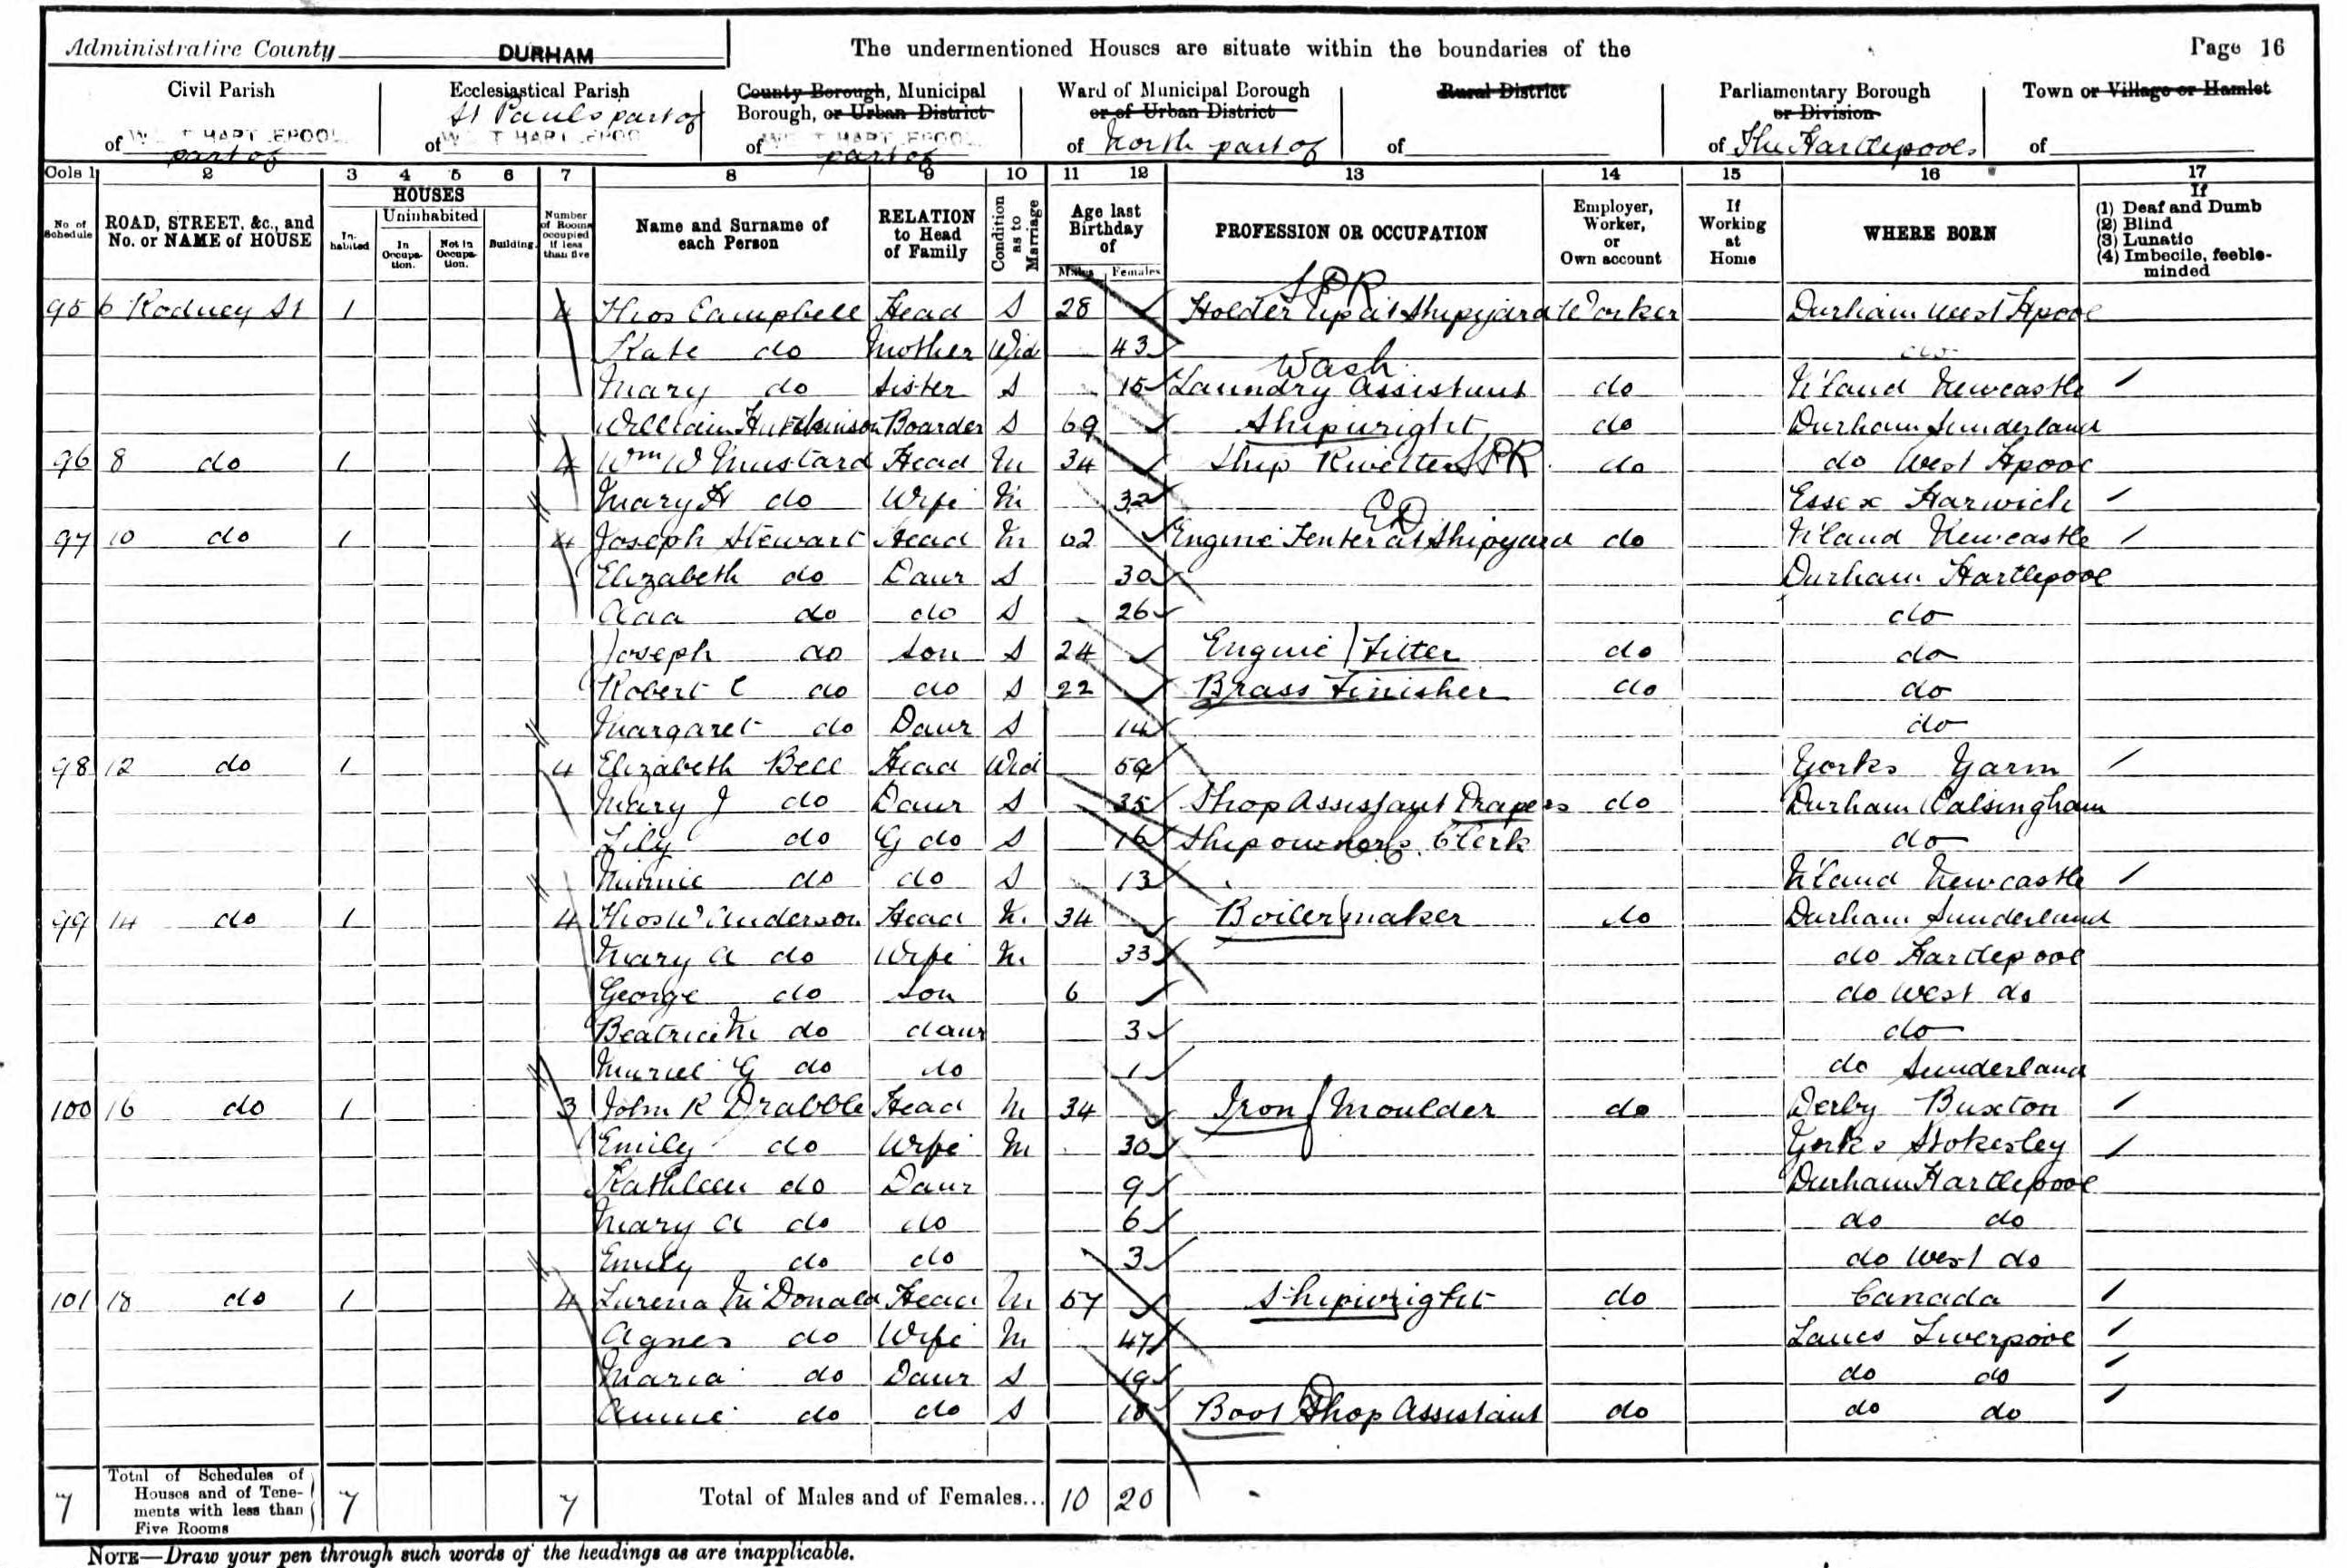 Administrative County DURHAM The undermentioned Houses are situate within the boundaries of the Page 16
Civil Parish Ecclesiastical Parish County Borough, Municipal Ward of Municipal Borough Rural District Parliamentary Borough Town or Village or Hamlet
St Pauls part of Borough, or Urban District or of Urban District or Division
of W T HART EPOOL of W T HART EPOO of W T HART EPOOL of North part of of of The Hartlepools of
part of part of
Cols 1 2 3 4 5 6 7 8 9 10 11 12 13 14 15 16 17
No. of Schedule ROAD, STREET, &c., and No. or NAME of HOUSE HOUSES In-habited Uninhabited In Occupa-tion. Not in Occupa-tion. Building. Number of Rooms occupied if less than five Name and Surname of each Person RELATION to Head of Family Condition as to Marriage Age last Birthday of Males Females PROFESSION OR OCCUPATION Employer, Worker, or Own account If Working at Home WHERE BORN If (1) Deaf and Dumb (2) Blind (3) Lunatic (4) Imbecile, feeble-minded
SPR
95 6 Rodney St 1 4 Thos Campbell Head S 28 Holder up at Shipyard Worker Durham West Hpool
Kate do Mother Wid 43 do
Wash
Mary do Sister S 15 Laundry Assistant do N'land Newcastle
William Hutchinson Boarder S 69 Shipwright do Durham Sunderland
96 8 do 1 4 Wm W Mustard Head M 34 Ship Rivetter SPR do do West Hpool
Mary H do Wife M 32 Essex Harwich
ED
97 10 do 1 4 Joseph Stewart Head M 62 Engine Tenter at Shipyard do N'land Newcastle
Elizabeth do Daur S 30 Durham Hartlepool
Ada do do S 26 do
Joseph do Son S 24 Engine Fitter do do
Robert C do do S 22 Brass Finisher do do
Margaret do Daur S 14 do
98 12 do 1 4 Elizabeth Bell Head Wid 59 Yorks Yarm
Mary J do Daur S 35 Shop Assistant Drapers do Durham Walsingham
Lily do G do S 16 Ship owners Clerk do
Minnie do do S 13 N'land Newcastle
99 14 do 1 4 Thos W Anderson Head M 34 Boiler maker do Durham Sunderland
Mary A do Wife M 33 do Hartlepool
George do Son 6 do West do
Beatrice M do daur 3 do
Muriel G do do 1 do Sunderland
100 16 do 1 3 John R Drabble Head M 34 Iron Moulder do Derby Buxton
Emily do Wife M 30 Yorks Stokesley
Kathleen do Daur 9 Durham Hartlepool
Mary A do do 6 do do
Emily do do 3 do West do
101 18 do 1 4 Lurena McDonald Head M 57 Shipwright do Canada
Agnes do Wife M 47 Lancs Liverpool
Maria do Daur S 19 do do
Annie do do S 18 Boot Shop Assistant do do do
7 Total of Schedules of Houses and of Tene-ments with less than Five Rooms 7 7 Total of Males and of Females... 10 20
NOTE—Draw your pen through such words of the headings as are inapplicable.